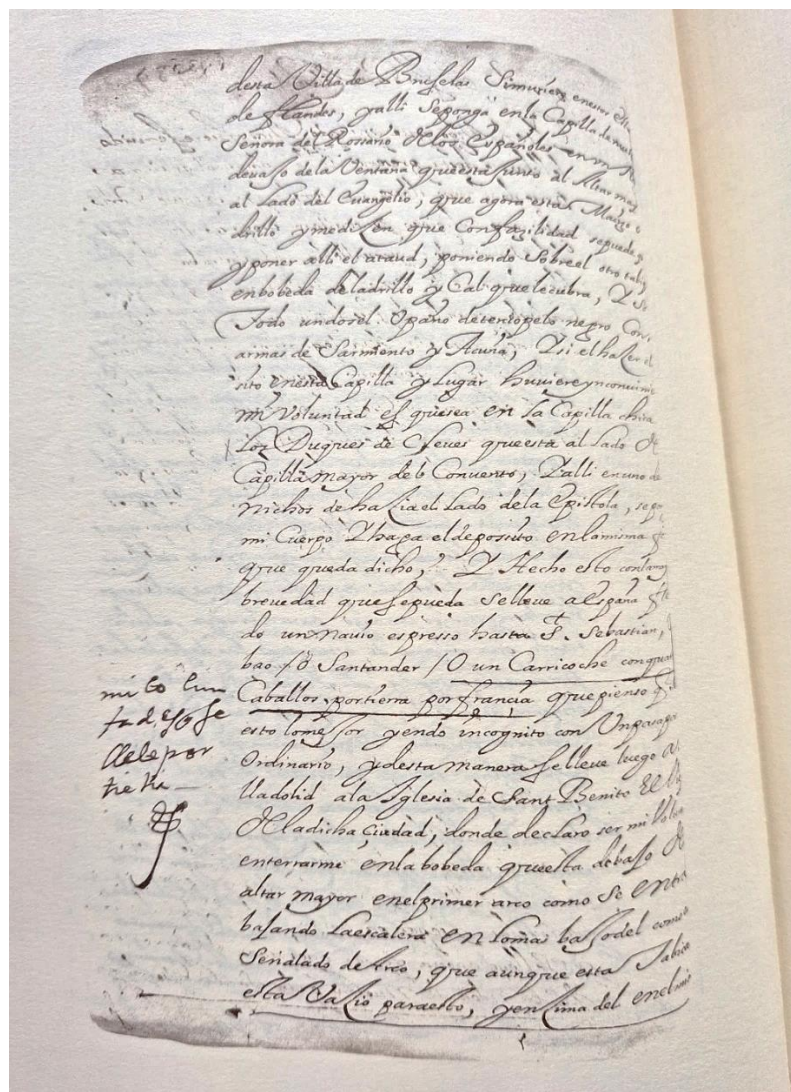 desta Villa de Bruselas Simuriere enestos esta
de flandes, yalli Seponga enla Capilla de nuest
Señora del Rosario delos Españoles en un
devajo dela Ventana queesta Junto al Altar may
al Lado del Euangelio, que agora esta
drillo ymedizen que Confazilidad sepuede
yponer alli el ataud, poniendo Sobreel otro tabi
enbobeda deladrillo y Cal quelecubra, Y So
Todo undosel Opaño deterciopelo negro Con
armas de Sarmiento y Acuña, Y si el hazer el
sito enesta Capilla y Lugar huviereynconuini
mi Voluntad es quesea en la Capilla
Los Duques de Cleves queesta al lado de
Capilla mayor del Convento, Yalli enuno de
Nichos de hazia el Lado dela Epistola, se
mi Cuerpo Yhaga eldeposito enlamisma
que queda dicho, Y Hecho esto conlamay
brevedad quesepueda selleve a España
do unnavio espresso hasta S. Sebastian,
bao / o Santander / O un Carricoche conqua
Caballos, portierra por francia quepienso
esto lomejor yendo incognito con Unpasapo
Ordinario, ydesta manera selleve luego a
lladolid ala Iglesia de Sant Benito El
de ladicha Ciudad, donde declaro ser mi Volun
enterrarme enlabobeda queesta debajo de
altar mayor enelprimer arco como Se entra
bajando Laescalera en lomas bajo del
Señalado de Arco, que aunque esta
esta Vazio paraesto, yenzima del
mi bolun
tad. es q se
lleve por
tierra —